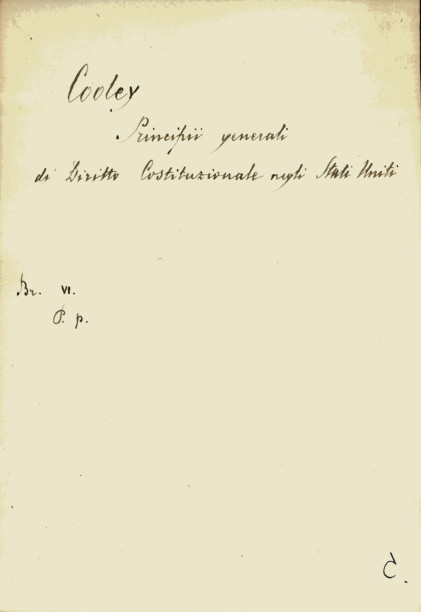 Cooley
Principii generali
di Diritto Costituzionale negli Stati Uniti
Br. VI.
P. p.
C.